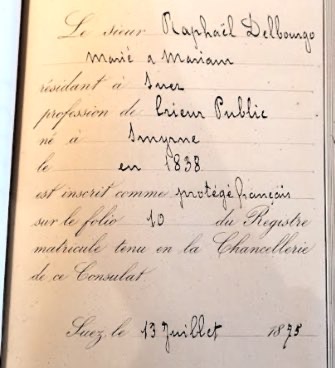 Le sieur Raphaël Delbourgo
Marié à Mariam
résidant à Suez
profession de Crieur Public
né à Smyrne
le en 1838
est inscrit comme protégé français
sur le folio 10 du Registre
matricule tenu en la Chancellerie
de ce Consulat.
Suez, le 13 Juillet 1875